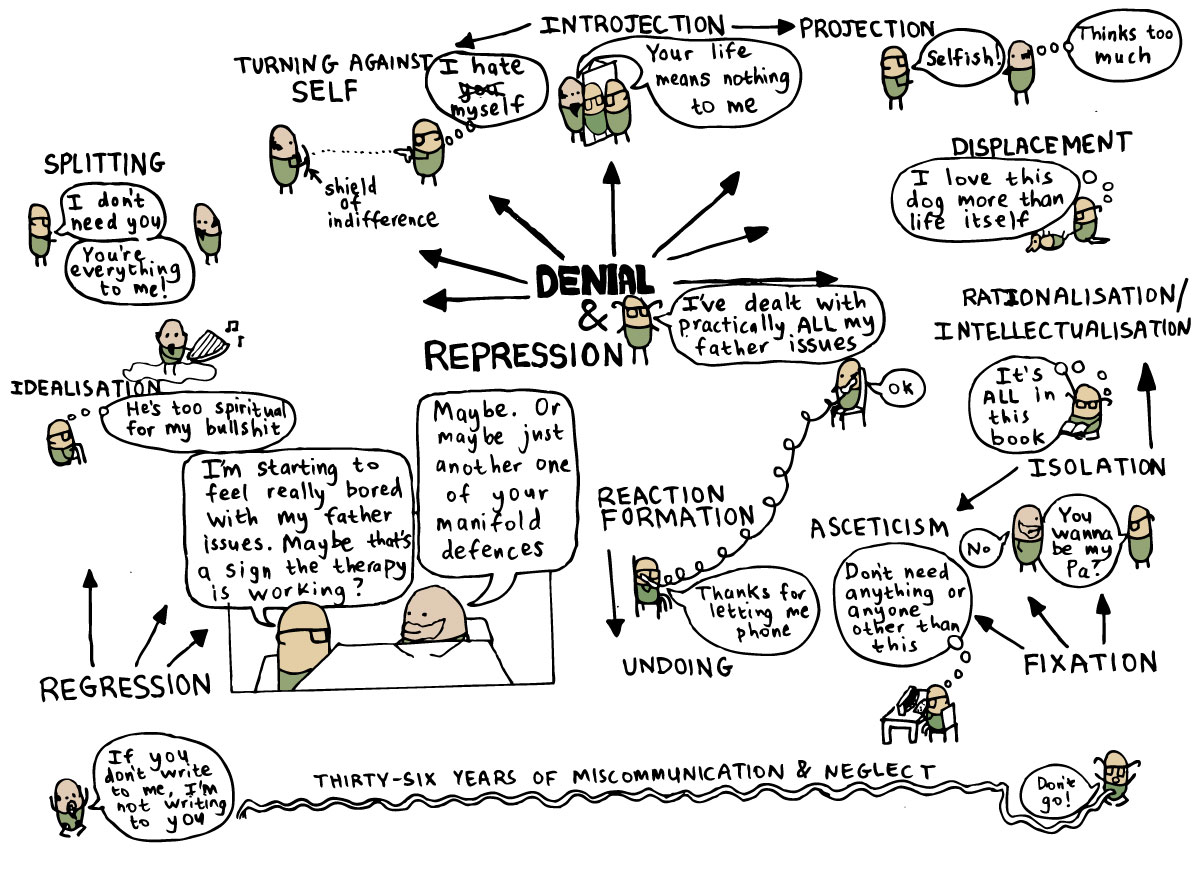 INTROJECTION
PROJECTION
Selfish!
Thinks too
much
TURNING AGAINST
SELF
I hate
you
myself
Your life
means nothing
to me
shield
of
indifference
DISPLACEMENT
I love this
dog more than
life itself
SPLITTING
I don't
need you
You're
everything
to me!
DENIAL
&
REPRESSION
I've dealt with
practically ALL my
father issues
RATIONALISATION/
INTELLECTUALISATION
It's
ALL in
this
book
IDEALISATION
He's too spiritual
for my bullshit
OK
I'm starting to
feel really bored
with my father
issues. Maybe that's
a sign the therapy
is working?
Maybe. Or
maybe just
another one
of your
manifold
defences
REACTION
FORMATION
Thanks for
letting me
phone
UNDOING
ISOLATION
ASCETICISM
No
You
wanna
be my
Pa?
Don't need
anything or
anyone
other than
this
FIXATION
REGRESSION
If you
don't write
to me, I'm
not writing
to you
THIRTY-SIX YEARS OF MISCOMMUNICATION & NEGLECT
Don't
go!